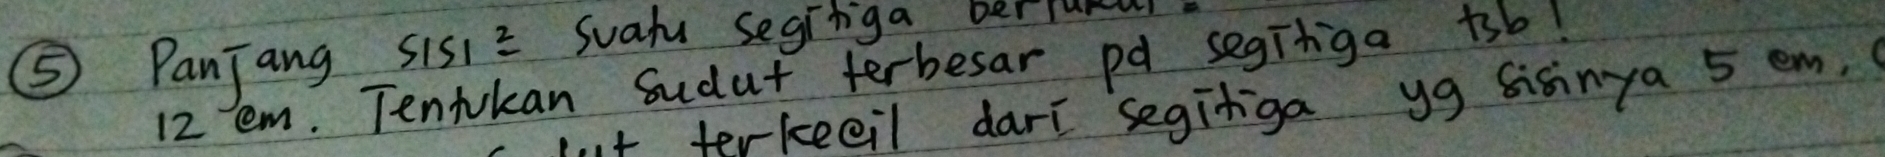 5 Panjang sisi2 suatu segitiga berturut2
12 cm. Tentukan sudut terbesar pd segitiga tsb!
terkecil dari segitiga yg sisinya 5 cm,